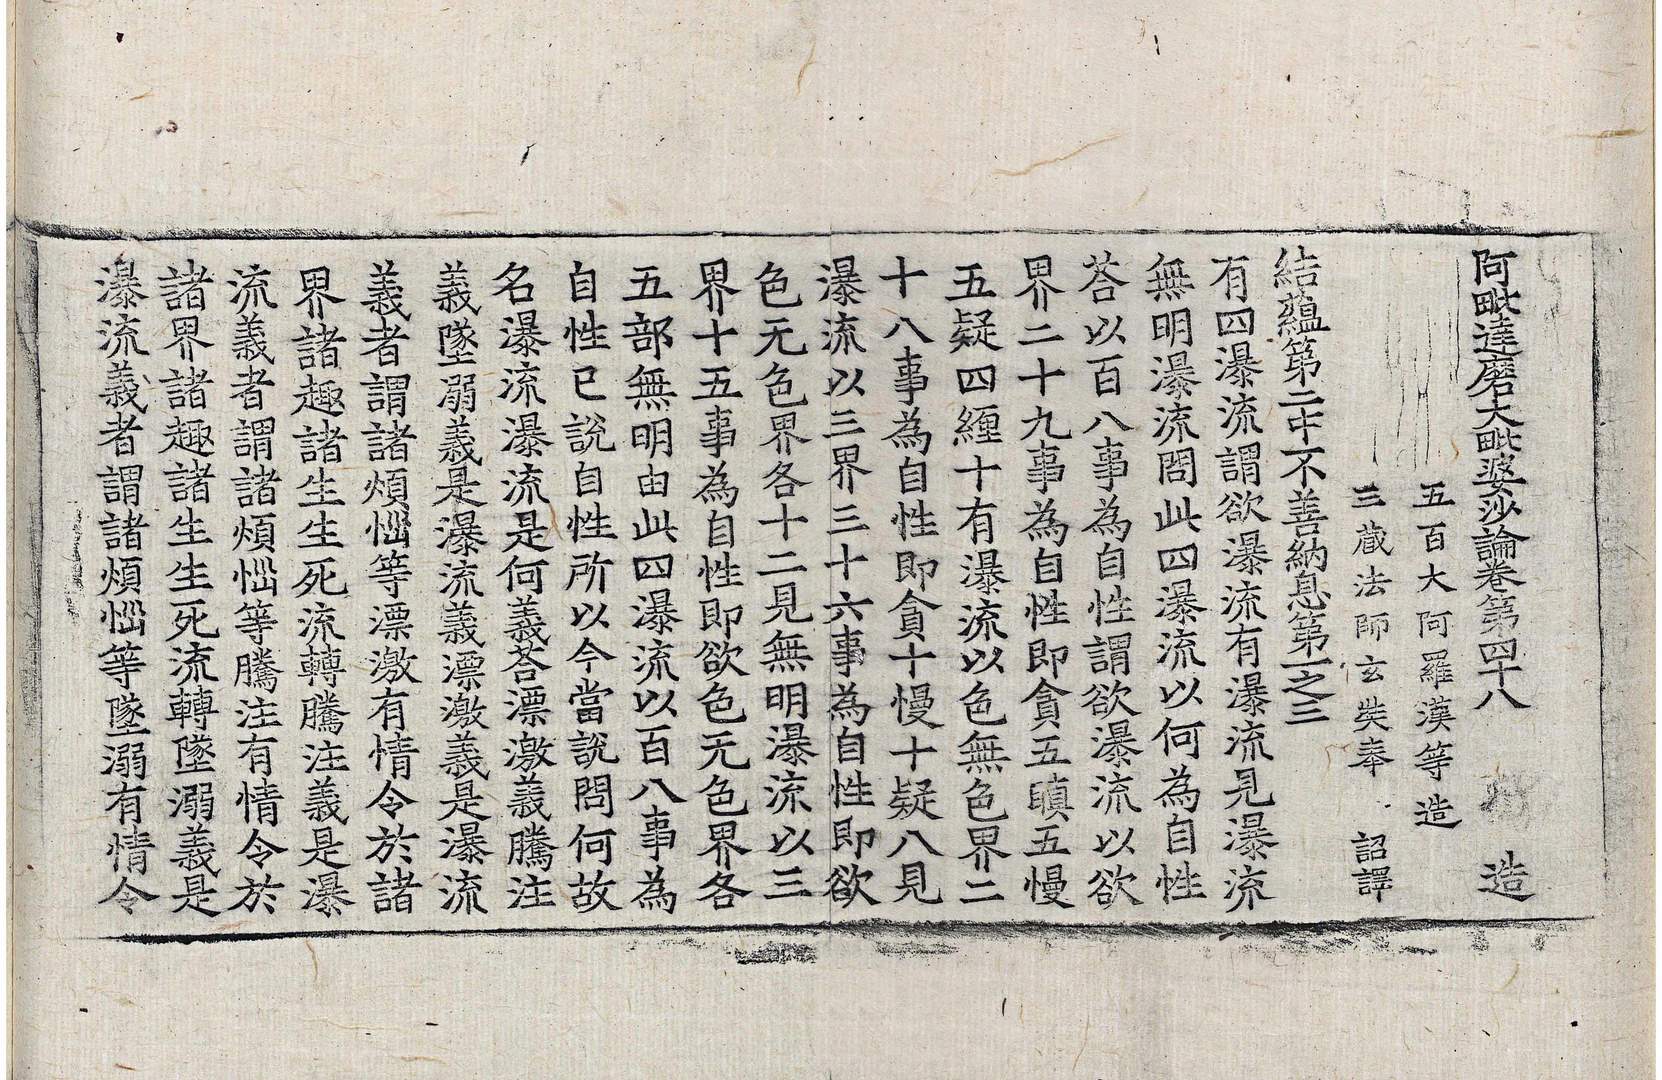 阿毗達磨大毗婆沙論卷第四十八　造
五百大阿羅漢等造
三藏法師玄奘奉　詔譯
結蘊第二中不善納息第一之三
有四瀑流謂欲瀑流有瀑流見瀑流
無明瀑流問此四瀑流以何為自性
荅以百八事為自性謂欲瀑流以欲
界二十九事為自性即貪五瞋五慢
五疑四纏十有瀑流以色無色界二
十八事為自性即貪十慢十疑八見
瀑流以三界三十六事為自性即欲
色无色界各十二見無明瀑流以三
界十五事為自性即欲色无色界各
五部無明由此四瀑流以百八事為
自性已說自性所以今當說問何故
名瀑流瀑流是何義荅漂激義騰注
義墜溺義是瀑流義漂激義是瀑流
義者謂諸煩惱等漂激有情令於諸
界諸趣諸生生死流轉騰注義是瀑
流義者謂諸煩惱等騰注有情令於
諸界諸趣諸生生死流轉墜溺義是
瀑流義者謂諸煩惱等墜溺有情令